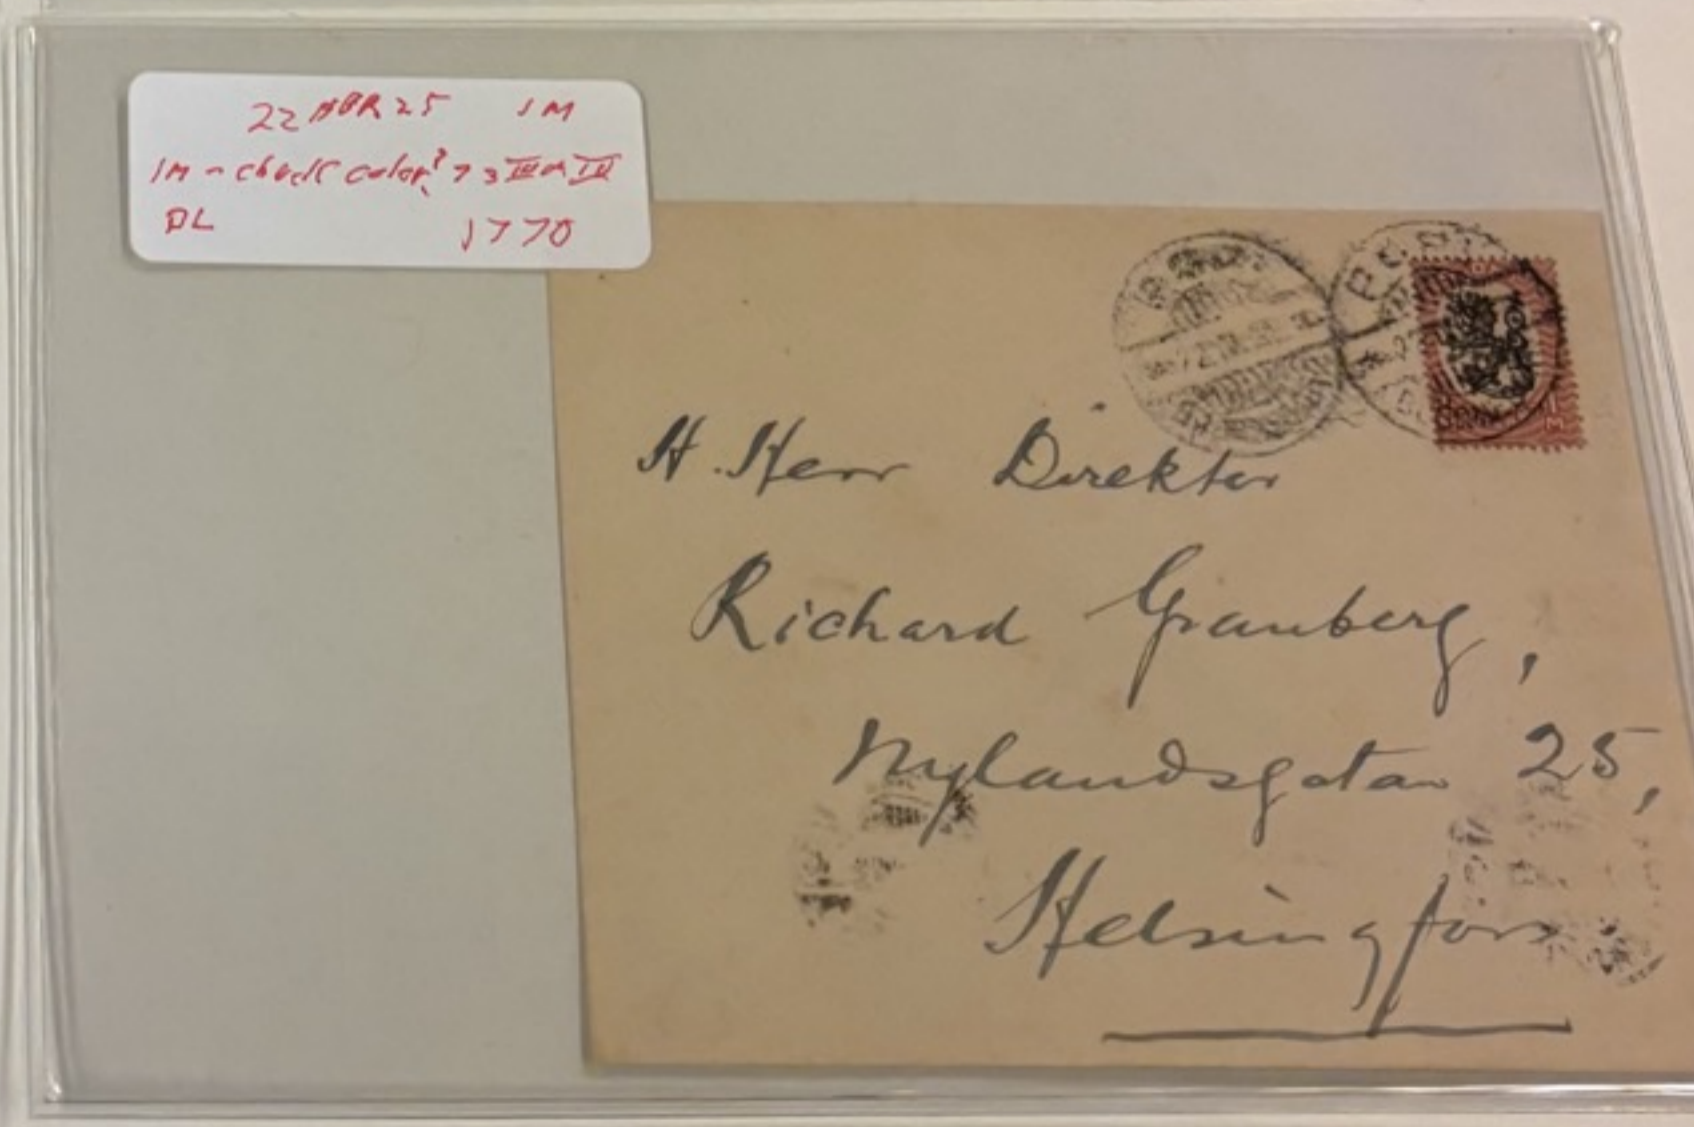 22 APR 25 1M
1M - check color? 73 III or IV
DL 1770
1 M
H. Herr Direktor
Richard Granberg,
Nylandsgatan 25,
Helsingfors